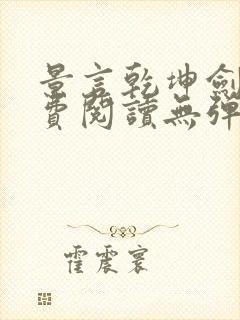 景言乾坤劍
費閱讀無彈
霍震寰